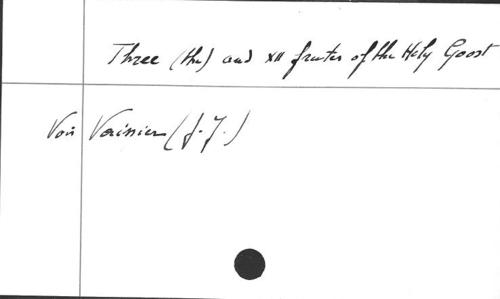 Three (the) and XII frutes of the Holy Goost
Voir Verissier (J. J.)